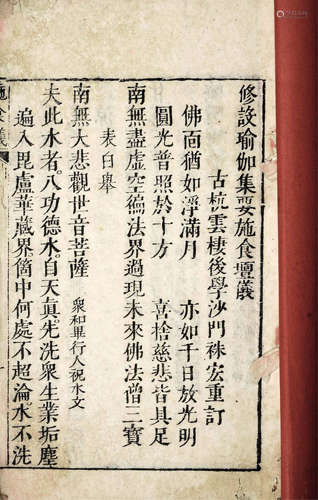 修設瑜伽集要施食壇儀
古杭雲棲後學沙門袾宏重訂
佛面猶如淨滿月 亦如千日放光明
圓光普照於十方 喜捨慈悲皆具足
南無盡虛空徧法界過現未來佛法僧三寶
表白舉
南無大悲觀世音菩薩 衆和畢行人祝水文
夫此水者八功德水自天真先洗衆生業垢塵
遍入毘盧華藏界箇中何處不超淪水不洗
施食儀